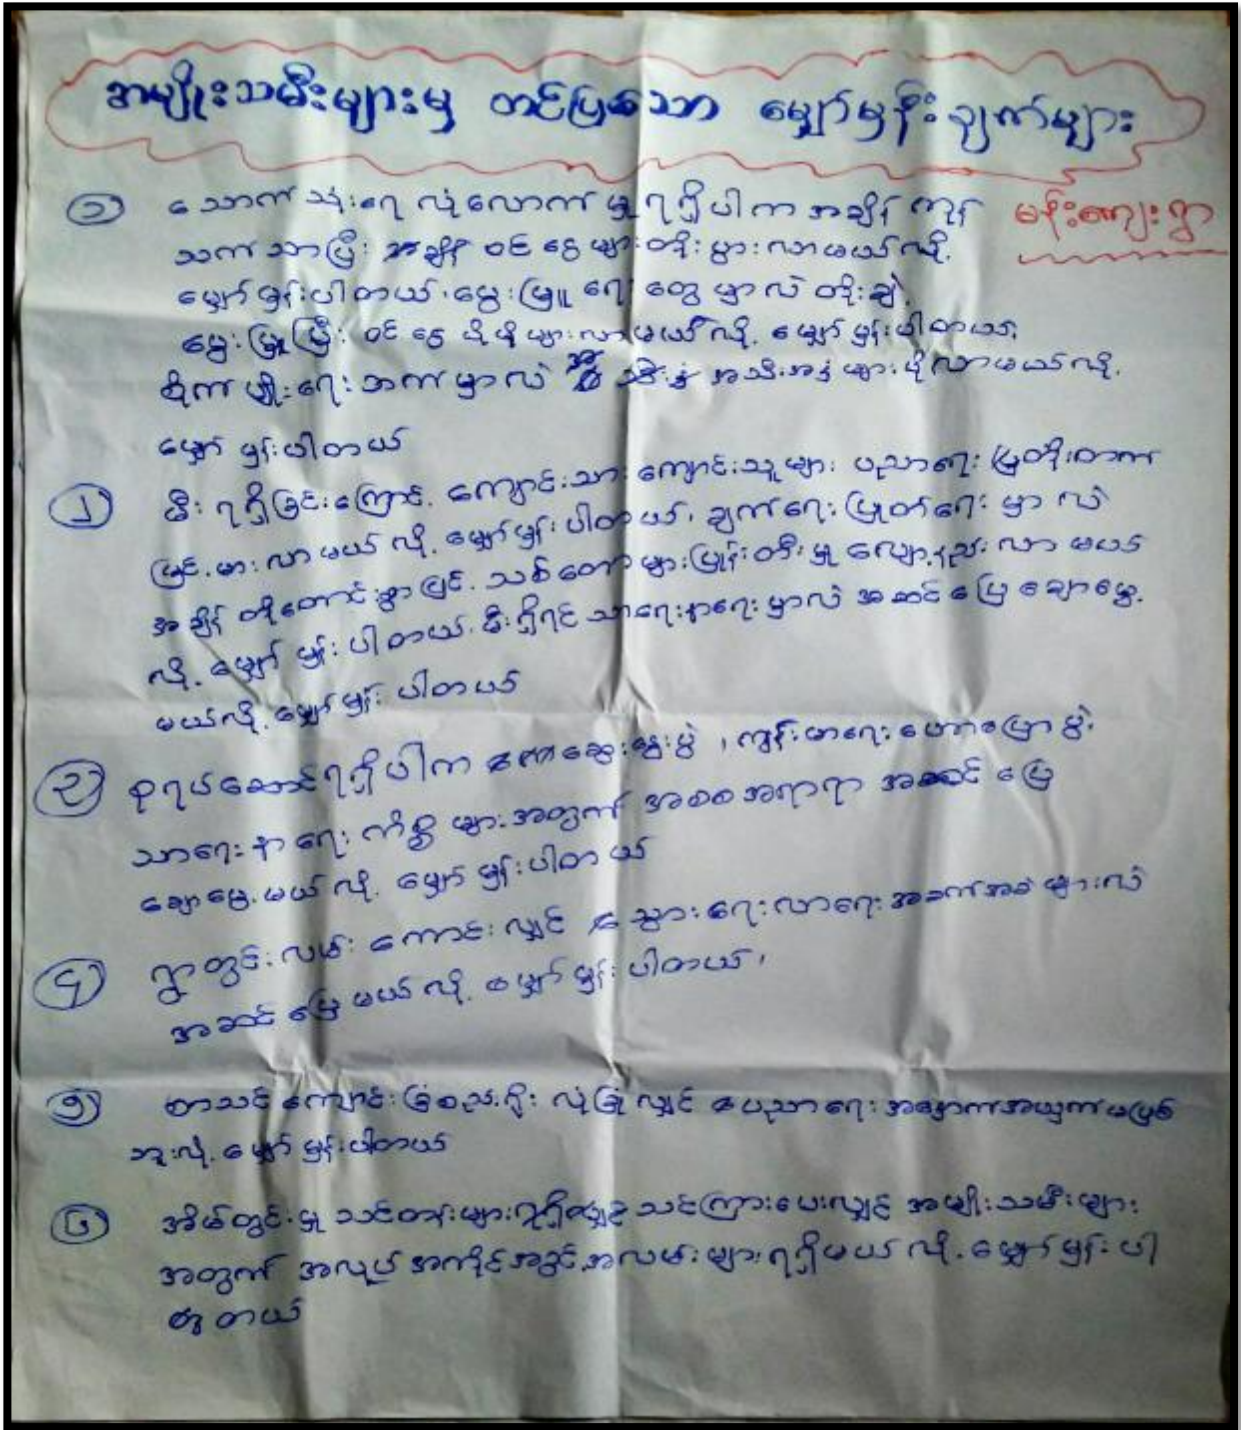 အမျိုးသမီးများမှ တင်ပြသော မျှော်မှန်းချက်များ
မန်းကျေးရွာ
၁ သောက်သုံးရေ လုံလောက်မှု ရရှိပါက အချိန်ကုန်
သက်သာပြီး အချိန် ဝင်ငွေများ တိုးပွားလာမယ်လို့
မျှော်မှန်းပါတယ်၊ မွေးမြူရေးတွေမှာလဲ တိုးချဲ့
မွေးမြူပြီး ဝင်ငွေ ပိုမိုများလာမယ်လို့ မျှော်မှန်းပါတယ်၊
စိုက်ပျိုးရေးဘက်မှာလဲ သီးနှံ အသီးအနှံများပိုလာမယ်လို့
မျှော်မှန်းပါတယ်
၂ မီးရရှိခြင်းကြောင့် ကျောင်းသား ကျောင်းသူများ ပညာရေး မြှင့်တိုးတက်
မြင့်မားလာမယ်လို့ မျှော်မှန်းပါတယ်၊ ချက်ရေးပြုတ်ရေးမှာလဲ
အချိန်တိုတောင်းစွာဖြင့် သစ်တောများပြုန်းတီးမှု လျော့နည်းလာမယ်
လို့ မျှော်မှန်းပါတယ်၊ မီးရှိရင် သာရေးနာရေးမှာလဲ အဆင်ပြေချောမွေ့
မယ်လို့ မျှော်မှန်းပါတယ်
၃ စုရပ်ဆောင်ရရှိပါက ဆွေးနွေးပွဲ ၊ ကျန်းမာရေးဟောပြောပွဲ
သာရေးနာရေး ကိစ္စများအတွက် အစစအရာရာ အဆင်ပြေ
ချောမွေ့မယ်လို့ မျှော်မှန်းပါတယ်
၄ ရွာတွင်းလမ်း ကောင်းလျှင် သွားရေးလာရေး အခက်အခဲများလဲ
အဆင်ပြေမယ်လို့ မျှော်မှန်းပါတယ်၊
၅ စာသင်ကျောင်း ခြံစည်းရိုး လုံခြုံလျှင် ပညာရေး အနှောက်အယှက်မဖြစ်
ဘူးလို့ မျှော်မှန်းပါတယ်
၆ အိမ်တွင်းမှု သင်တန်းများ သင်ကြားပေးလျှင် အမျိုးသမီးများ
အတွက် အလုပ်အကိုင်အခွင့်အလမ်းများရရှိမယ်လို့ မျှော်မှန်းပါ
တယ်